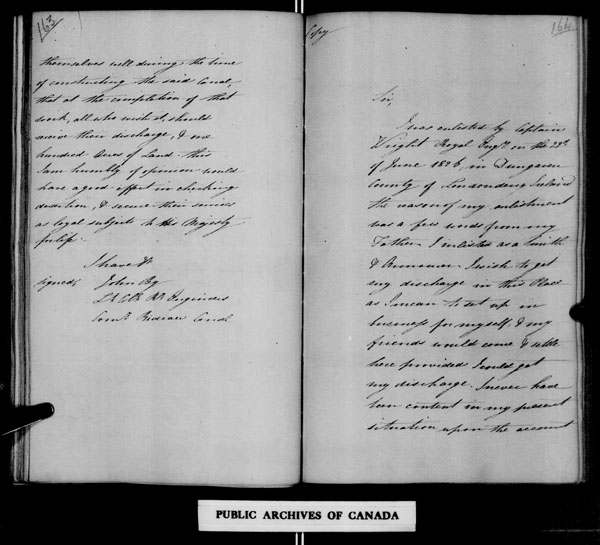 163
themselves well during the time
of constructing the said Canal,
that at the completion of that
work, all who wish it, should
receive their discharge, & one
hundred Acres of Land - this
I am humbly of opinion would
have a good effect in checking
desertion, & secure their services
as loyal subjects to His Majesty
I have &c
signed, John By
Lt Col. Rl. Engineers
Comg. Rideau Canal
Copy
164
Sir,
I was enlisted by Captain
Wright Royal Engrs. on the 22d.
of June 1826, in Dungiven
County of Londonderry Ireland
the reason of my enlistment
was a few words from my
Father. I inlisted as a Smith
& Armourer I wish to get
my discharge in this Place
as I mean to set up in
business for myself, & my
friends would come & settle
here provided I could get
my discharge. I never have
been content in my present
situation upon the account
PUBLIC ARCHIVES OF CANADA